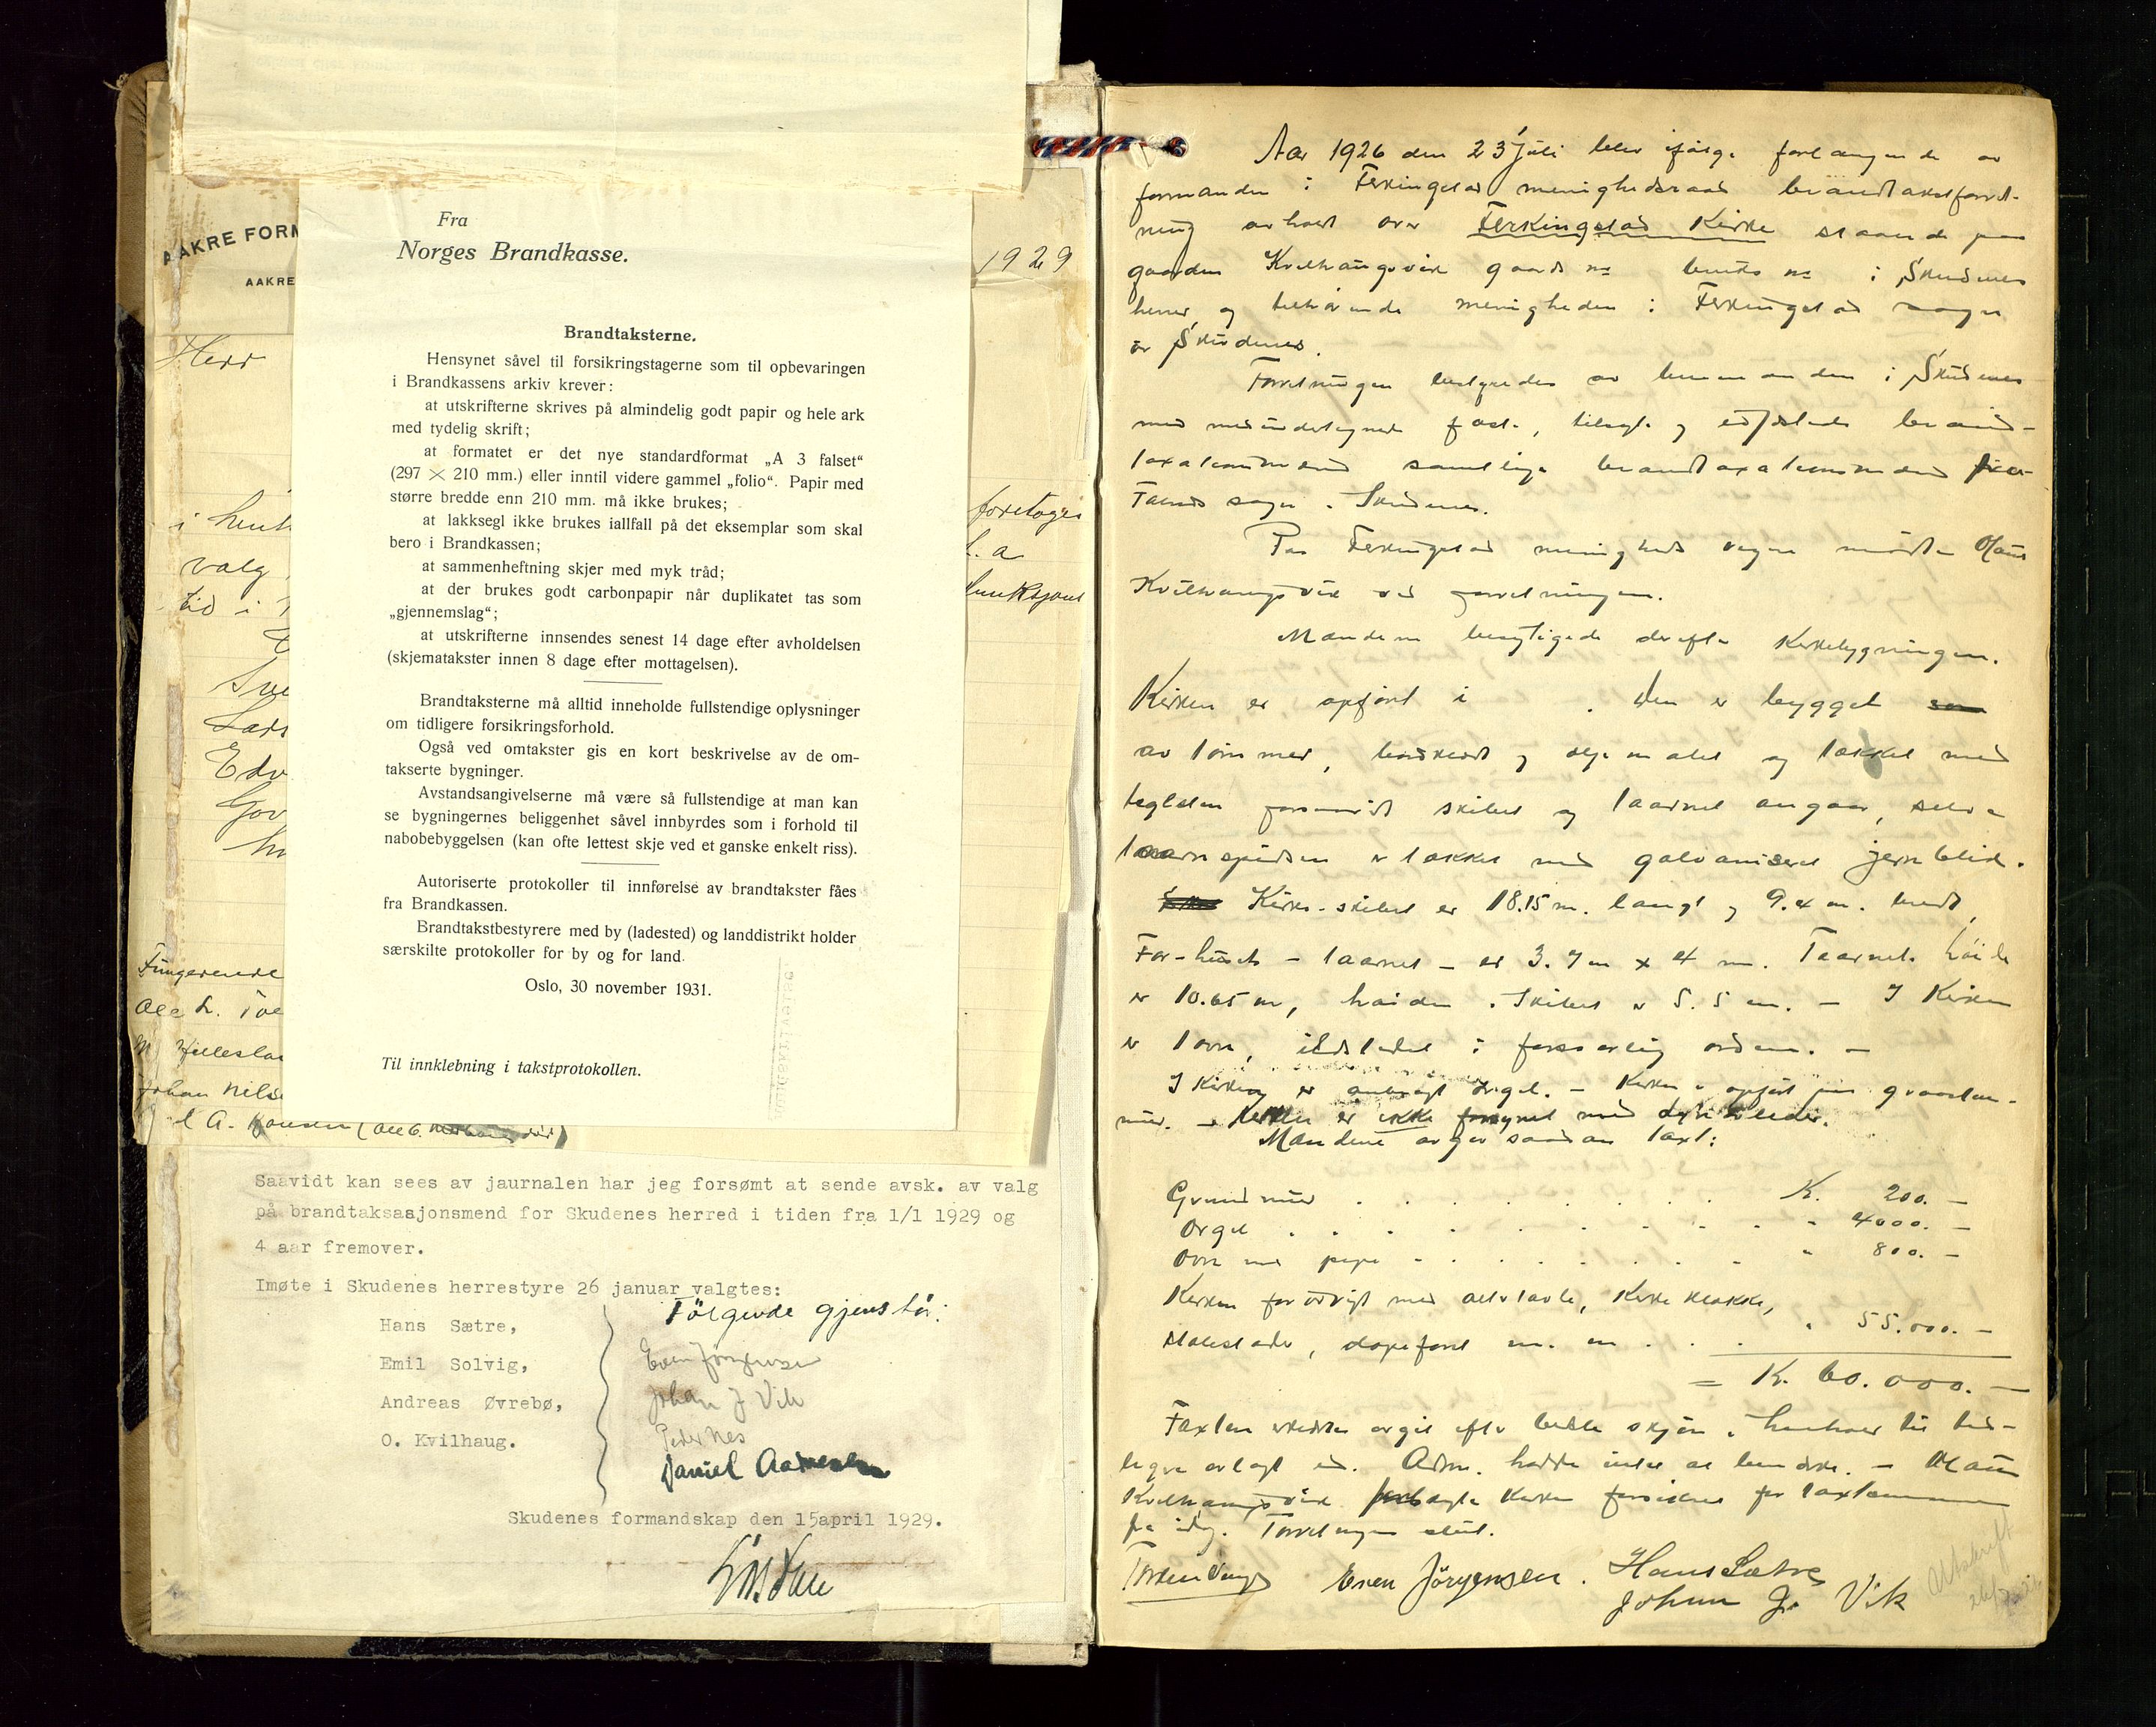 AAKRE FORM
AAKRE
1929
Herr
foretages
i henh
valg
tid i
funksjons
Lars
Edv
Gov
Fungerende
Johan Nils
Fra
Norges Brandkasse.
Brandtaksterne.
Hensynet såvel til forsikringstagerne som til opbevaringen
i Brandkassens arkiv krever:
at utskrifterne skrives på almindelig godt papir og hele ark
med tydelig skrift;
at formatet er det nye standardformat „A 3 falset“
(297 × 210 mm.) eller inntil videre gammel „folio“. Papir med
større bredde enn 210 mm. må ikke brukes;
at lakksegl ikke brukes iallfall på det eksemplar som skal
bero i Brandkassen;
at sammenheftning skjer med myk tråd;
at der brukes godt carbonpapir når duplikatet tas som
„gjennemslag“;
at utskrifterne innsendes senest 14 dage efter avholdelsen
(skjematakster innen 8 dage efter mottagelsen).
Brandtaksterne må alltid inneholde fullstendige oplysninger
om tidligere forsikringsforhold.
Også ved omtakster gis en kort beskrivelse av de om-
takserte bygninger.
Avstandsangivelserne må være så fullstendige at man kan
se bygningernes beliggenhet såvel innbyrdes som i forhold til
nabobebyggelsen (kan ofte lettest skje ved et ganske enkelt riss).
Autoriserte protokoller til innførelse av brandtakster fåes
fra Brandkassen.
Brandtakstbestyrere med by (ladested) og landdistrikt holder
særskilte protokoller for by og for land.
Oslo, 30 november 1931.
Til innklebning i takstprotokollen.
Saavidt kan sees av jaurnalen har jeg forsømt at sende avsk. av valg
på brandtaksasjonsmend for Skudenes herred i tiden fra 1/1 1929 og
4 aar fremover.
Imøte i Skudenes herrestyre 26 januar valgtes:
Følgende gjenstår:
Hans Sætre,
Emil Solvig,
Andreas Øvrebø,
O. Kvilhaug.
Even Jørgensen
Johan J Vik
Peder Nes
Daniel Aadnesen
Skudenes formandskap den 15april 1929.
Aar 1926 den 23 Juli blev ifølge forlangende av
formanden i Ferkingstad menighedsraad brandtakstforret-
ning avholdt over Ferkingstad Kirke staaende paa
gaarden Kvilhaugsvik gaards no bruks no i Skudenes
herred og tilhørende menigheden i Ferkingstad sogn
av Skudenes.
Forretningen bestyredes av lensmanden i Skudenes
med medundertegnede faste, tilsagte og edfæstede brand-
taxationsmænd samtlige brandtaxationsmænd fra
Falnes sogn i Skudenes.
Paa Ferkingstad menigheds vegne mødte
Kvilhaugsvik ved forretningen.
Mændene besigtigede derefter Kirkebygningen.
Kirken er opført i . Den er bygget som
av tømmer, bordklædt og oljemalet og tækket med
teglsten forsaavidt skibet og taarnet angaar, selve
taarnspidsen er tækket med galvaniseret jernblik.
Kirke-skibet er 18.15 m. langt og 9.4 m. bredt,
For-huset - taarnet - er 3.7 m x 4 m. Taarnets høide
er 10.65 m, høiden i Skibet er 5.5 m. - I Kirken
er 1 ovn, ildstedet i forsvarlig orden. -
I Kirken er anbragt orgel. - Kirken er opført paa graasten-
mur. - Kirken er ikke forsynet med lynavleder.
Mændene avgav saadan taxt:
Grundmur . . . . . . . . K. 200. -
Orgel . . . . . . . . " 4000. -
Ovn med pipe . . . . . . . " 800. -
Kirken forøvrigt med altertavle, Kirkeklokke,
stolestader, døpefont m. m. . . . " 55.000. -
= K. 60.000. -
Taxten erklæredes avgit efter bedste skjøn i henhold til tid-
ligere avlagt ed. Adm. hadde intet at bemerke. -
Kvilhaugsvik forlangte Kirken forsikret for taxtsummen
fra idag. Forretningen slut.
Even Jørgensen. Hans Sætre
Johan J. Vik
Utskrift